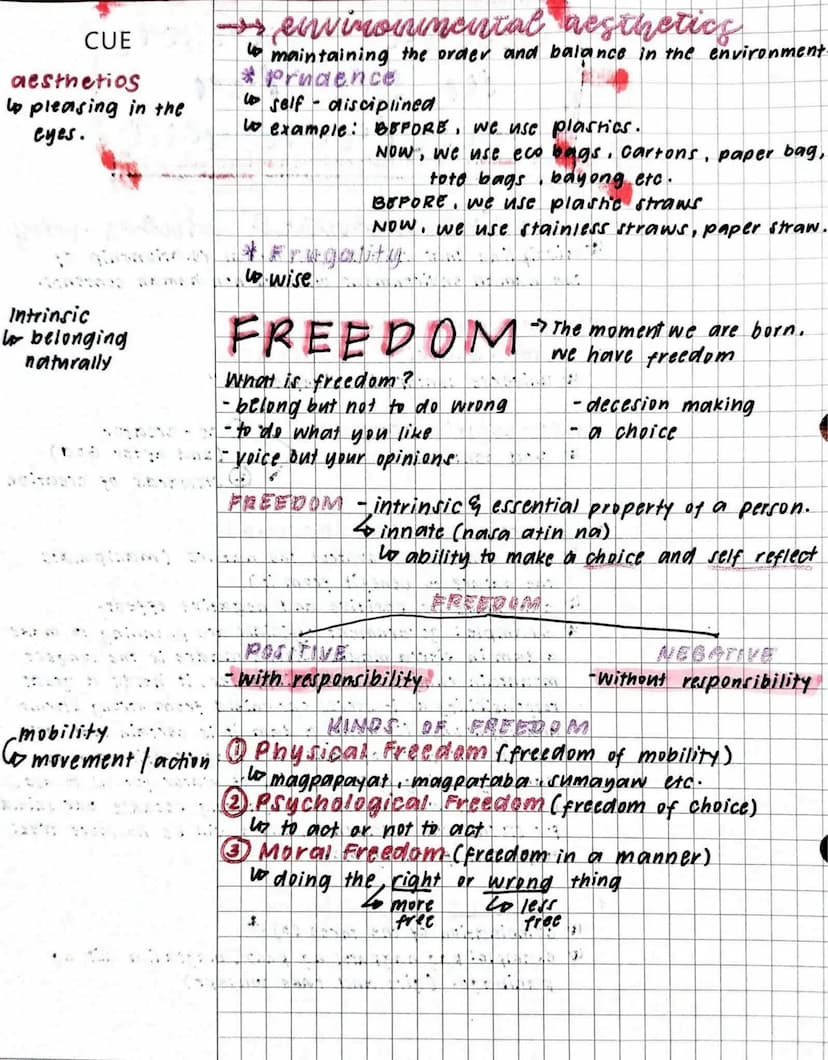 CUE
aesthetics
↳ pleasing in the
eyes.
Intrinsic
↳ belonging
naturally
mobility
↳ movement / action
→ environmental aesthetics
↳ maintaining the order and balance in the environment
* Prudence
↳ self - disciplined
↳ example: BEFORE, we use plastics.
NOW, we use eco bags, cartons, paper bag,
tote bags, bayong etc.
BEFORE, we use plastic straws
NOW, we use stainless straws, paper straw.
* Frugality
↳ wise
FREEDOM → The moment we are born,
we have freedom
What is freedom?
- belong but not to do wrong - decesion making
- to do what you like - a choice
- voice out your opinions
FREEDOM - intrinsic & essential property of a person.
↳ innate (nasa atin na)
↳ ability to make a choice and self reflect
FREEDOM
POSITIVE NEGATIVE
- with responsibility - without responsibility
KINDS OF FREEDOM
① Physical Freedom (freedom of mobility)
↳ magpapayat, magpataba, sumayaw etc.
② Psychological Freedom (freedom of choice)
↳ to act or not to act
③ Moral Freedom (freedom in a manner)
↳ doing the right or wrong thing
↳ more ↳ less
free free